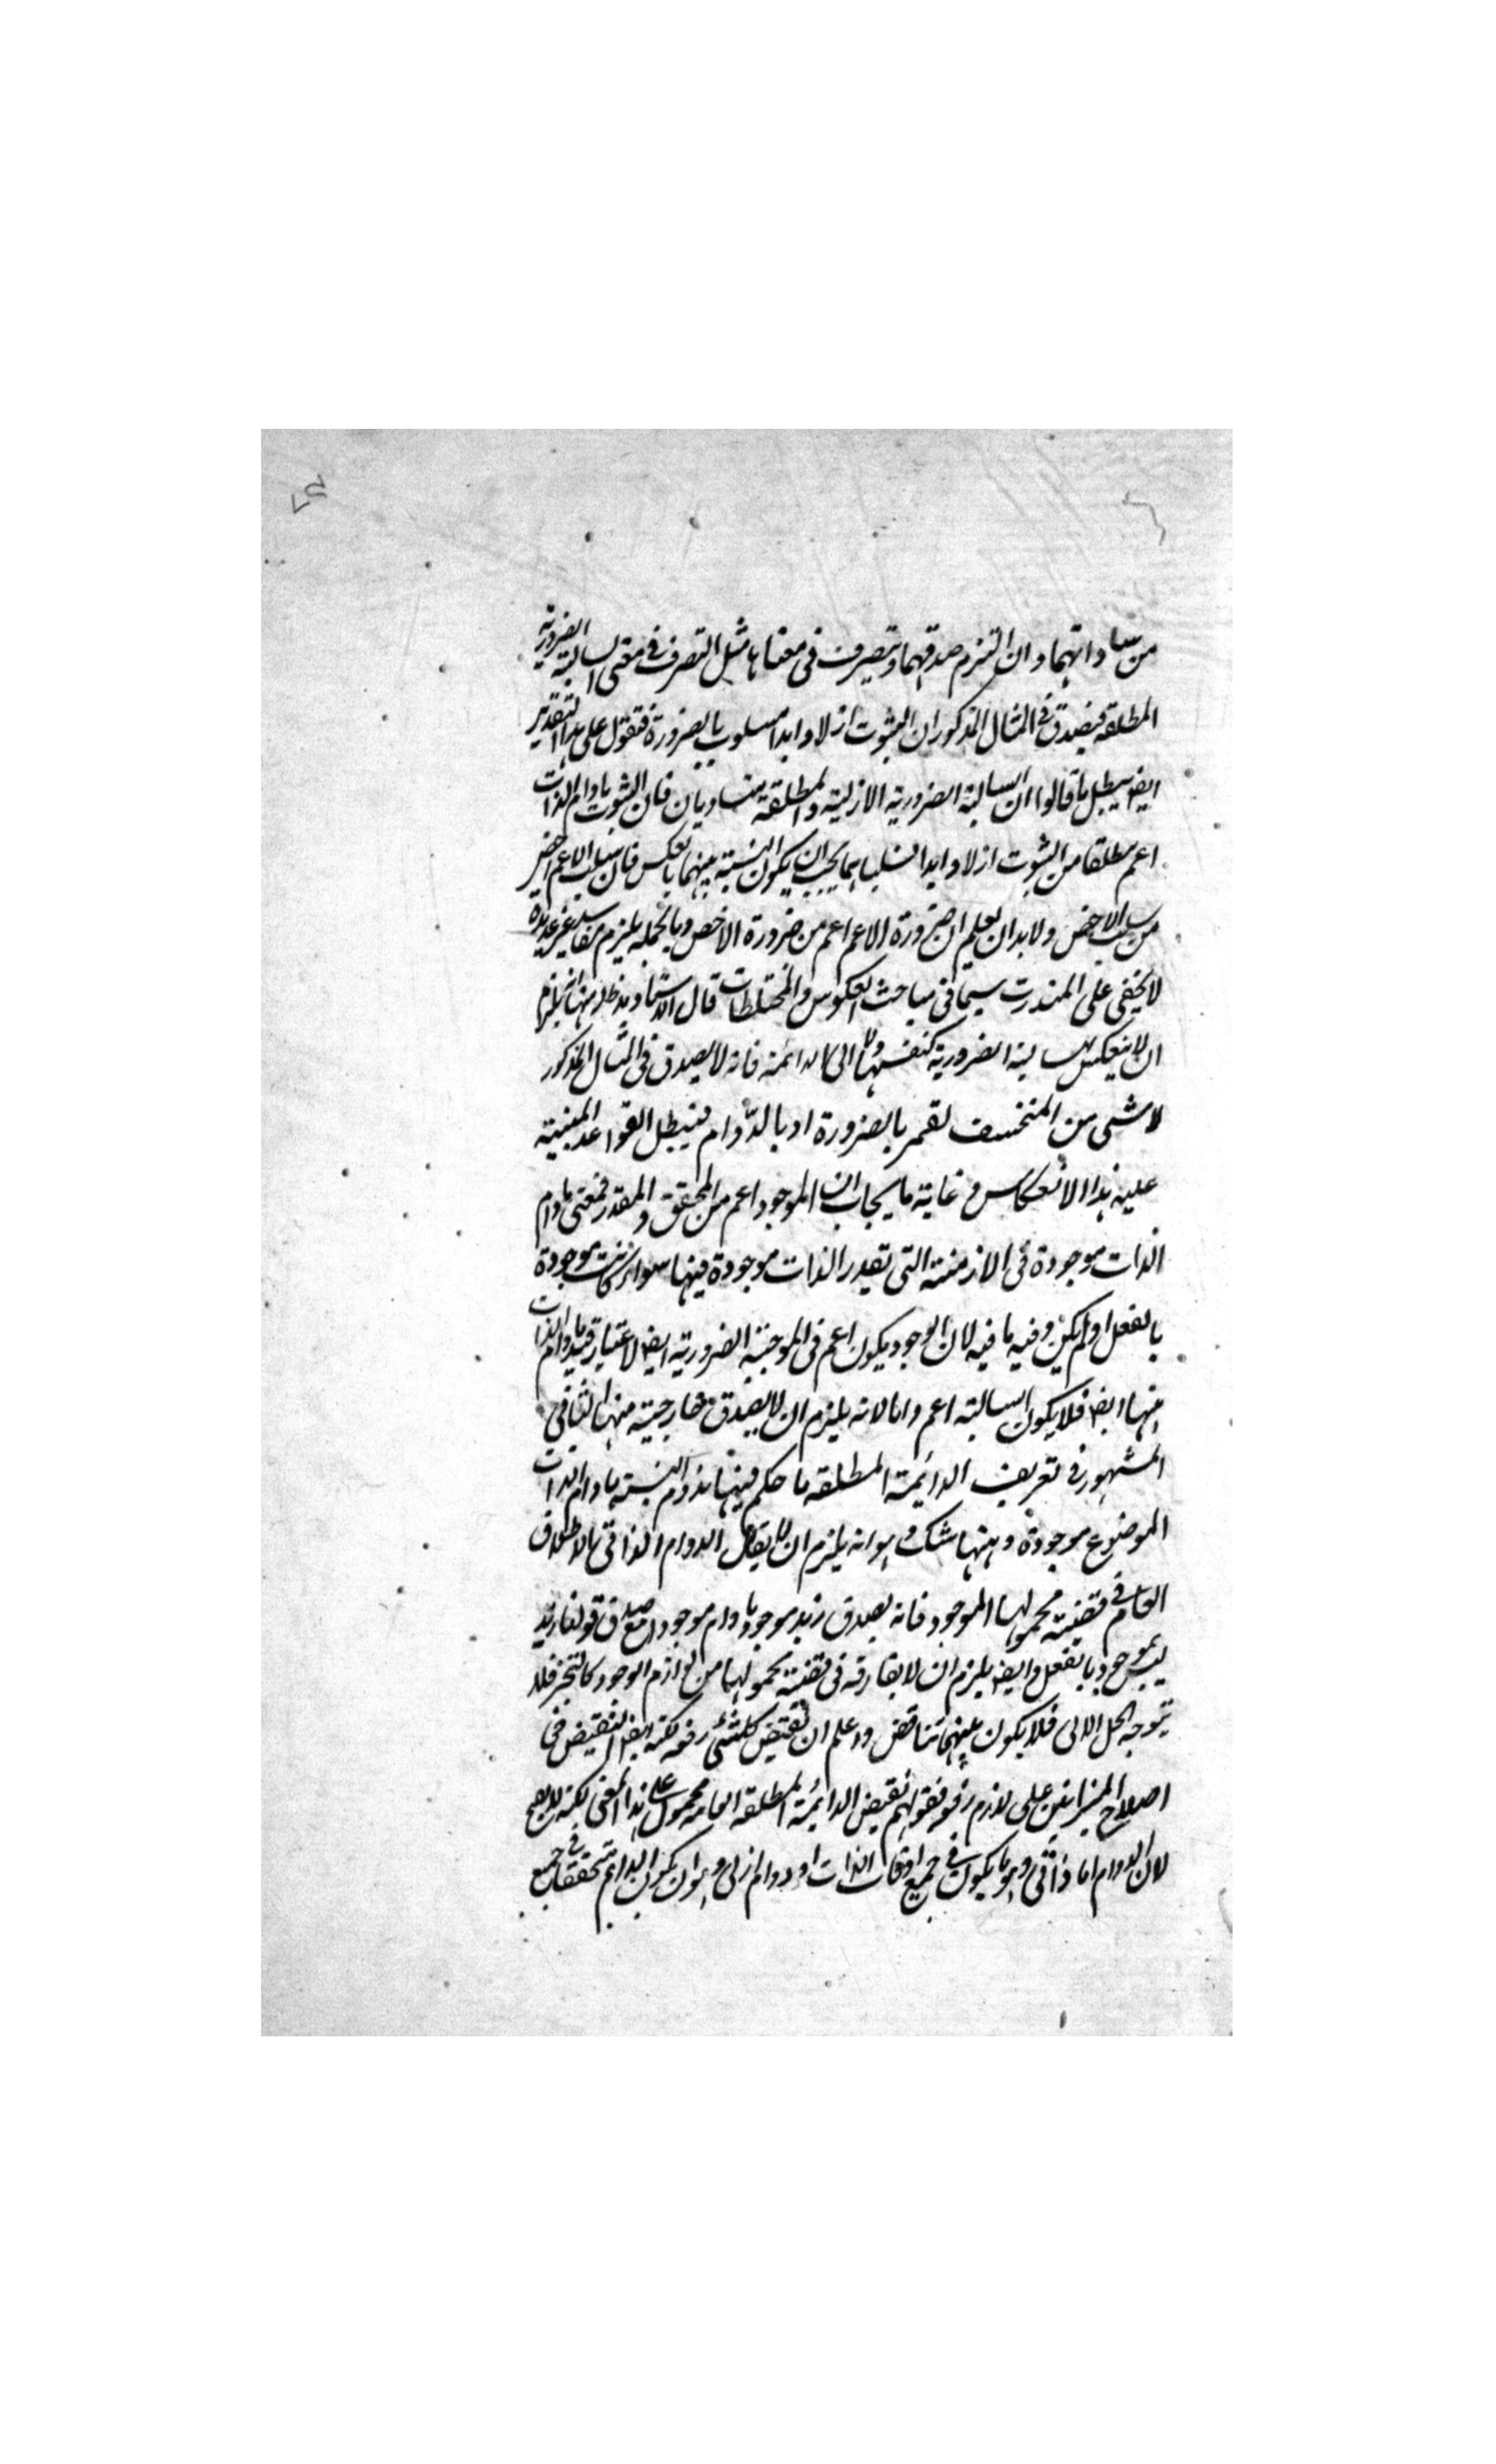 من مساواتهما وان التزم صدقهما وتصرف فى معناها مثل التصرف فى معنى السالبة الضرورية
المطلقة فيصدق فى المثال المذكور ان الثبوت ازلا وابدا مسلوب بالضرورة فنقول على هذا التقدير
ايضا يبطل ما قالوا ان السالبة الضرورية الازلية والمطلقة متساويان فان الثبوت ما دام الذات
اعم مطلقا من الثبوت ازلا وابدا فسلباهما يجب ان يكون النسبة بينهما بالعكس فان سلب الاعم اخص
من سلب الاخص ولا بد ان يعلم ان ضرورة الاعم اعم من ضرورة الاخص وبالجملة يلزم مفاسد غير عديدة
لا يخفى على المتدرب سيما فى مباحث العكوس والمختلطات قال الاستاد مد ظله منها انه يلزم
ان لا ينعكس السالبة الضرورية كنفسها ولا الى الدائمة فانه لا يصدق فى المثال المذكور
لا شى من المنخسف بقمر بالضرورة او بالدوام فيبطل القواعد المبنية
عليه هذا الانعكاس و غاية ما يجاب ان الموجود اعم من المحقق والمقدر فمعنى ما دام
الذات موجودة فى الازمنة التى تقدر الذات موجودة فيها سواء كانت موجودة
بالفعل او لم يكن وفيه ما فيه لان الوجود يكون اعم فى الموجبة الضرورية ايضا لاعتبار قيد ما دام الذات
فيها ايضا فلا يكون السالبة اعم واما لانه يلزم ان لا يصدق خارجية منها الثانى
المشهور فى تعريف الدائمة المطلقة ما حكم فيها بدوام النسبة ما دام الذات
الموضوع موجودة وههنا شك وهو انه يلزم ان لا يقابل الدوام الذاتى بالاطلاق
العام فى قضية محمولها الموجود فانه يصدق زيد موجود ما دام موجودا مع صدق قولنا زيد
ليس بموجود بالفعل وايضا يلزم ان لا يفارقه فى قضية محمولها من لوازم الوجود كالتحيز فلا
يتوجه الحل الا لى فلا يكون بينهما تناقض واعلم ان نقيض كل شئ رفعه لكنه ايضا النقيض فى
اصطلاح الميزانيين على لازم رفعه فقولهم نقيض الدائمة المطلقة العامة محمول على هذا المعنى لكنه لا يصح
لان الدوام اما ذاتى وهو ما يكون فى جميع اوقات الذات او دوام ازلى وهو ان يكون الدايم متحققا فى جميع